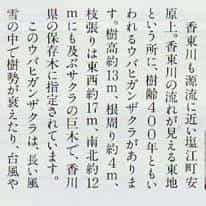 香東川も源流に近い塩江町安
原上。香東川の流れが見える東地
という所に、樹齢４００年ともい
われるウバヒガンザクラがありま
す。樹高約13ｍ、根周り約４ｍ、
枝張りは東西約17ｍ、南北約12
ｍにも及ぶサクラの巨木で、香川
県の保存木に指定されています。
　このウバヒガンザクラは、長い風
雪の中で樹勢が衰えたり、台風や